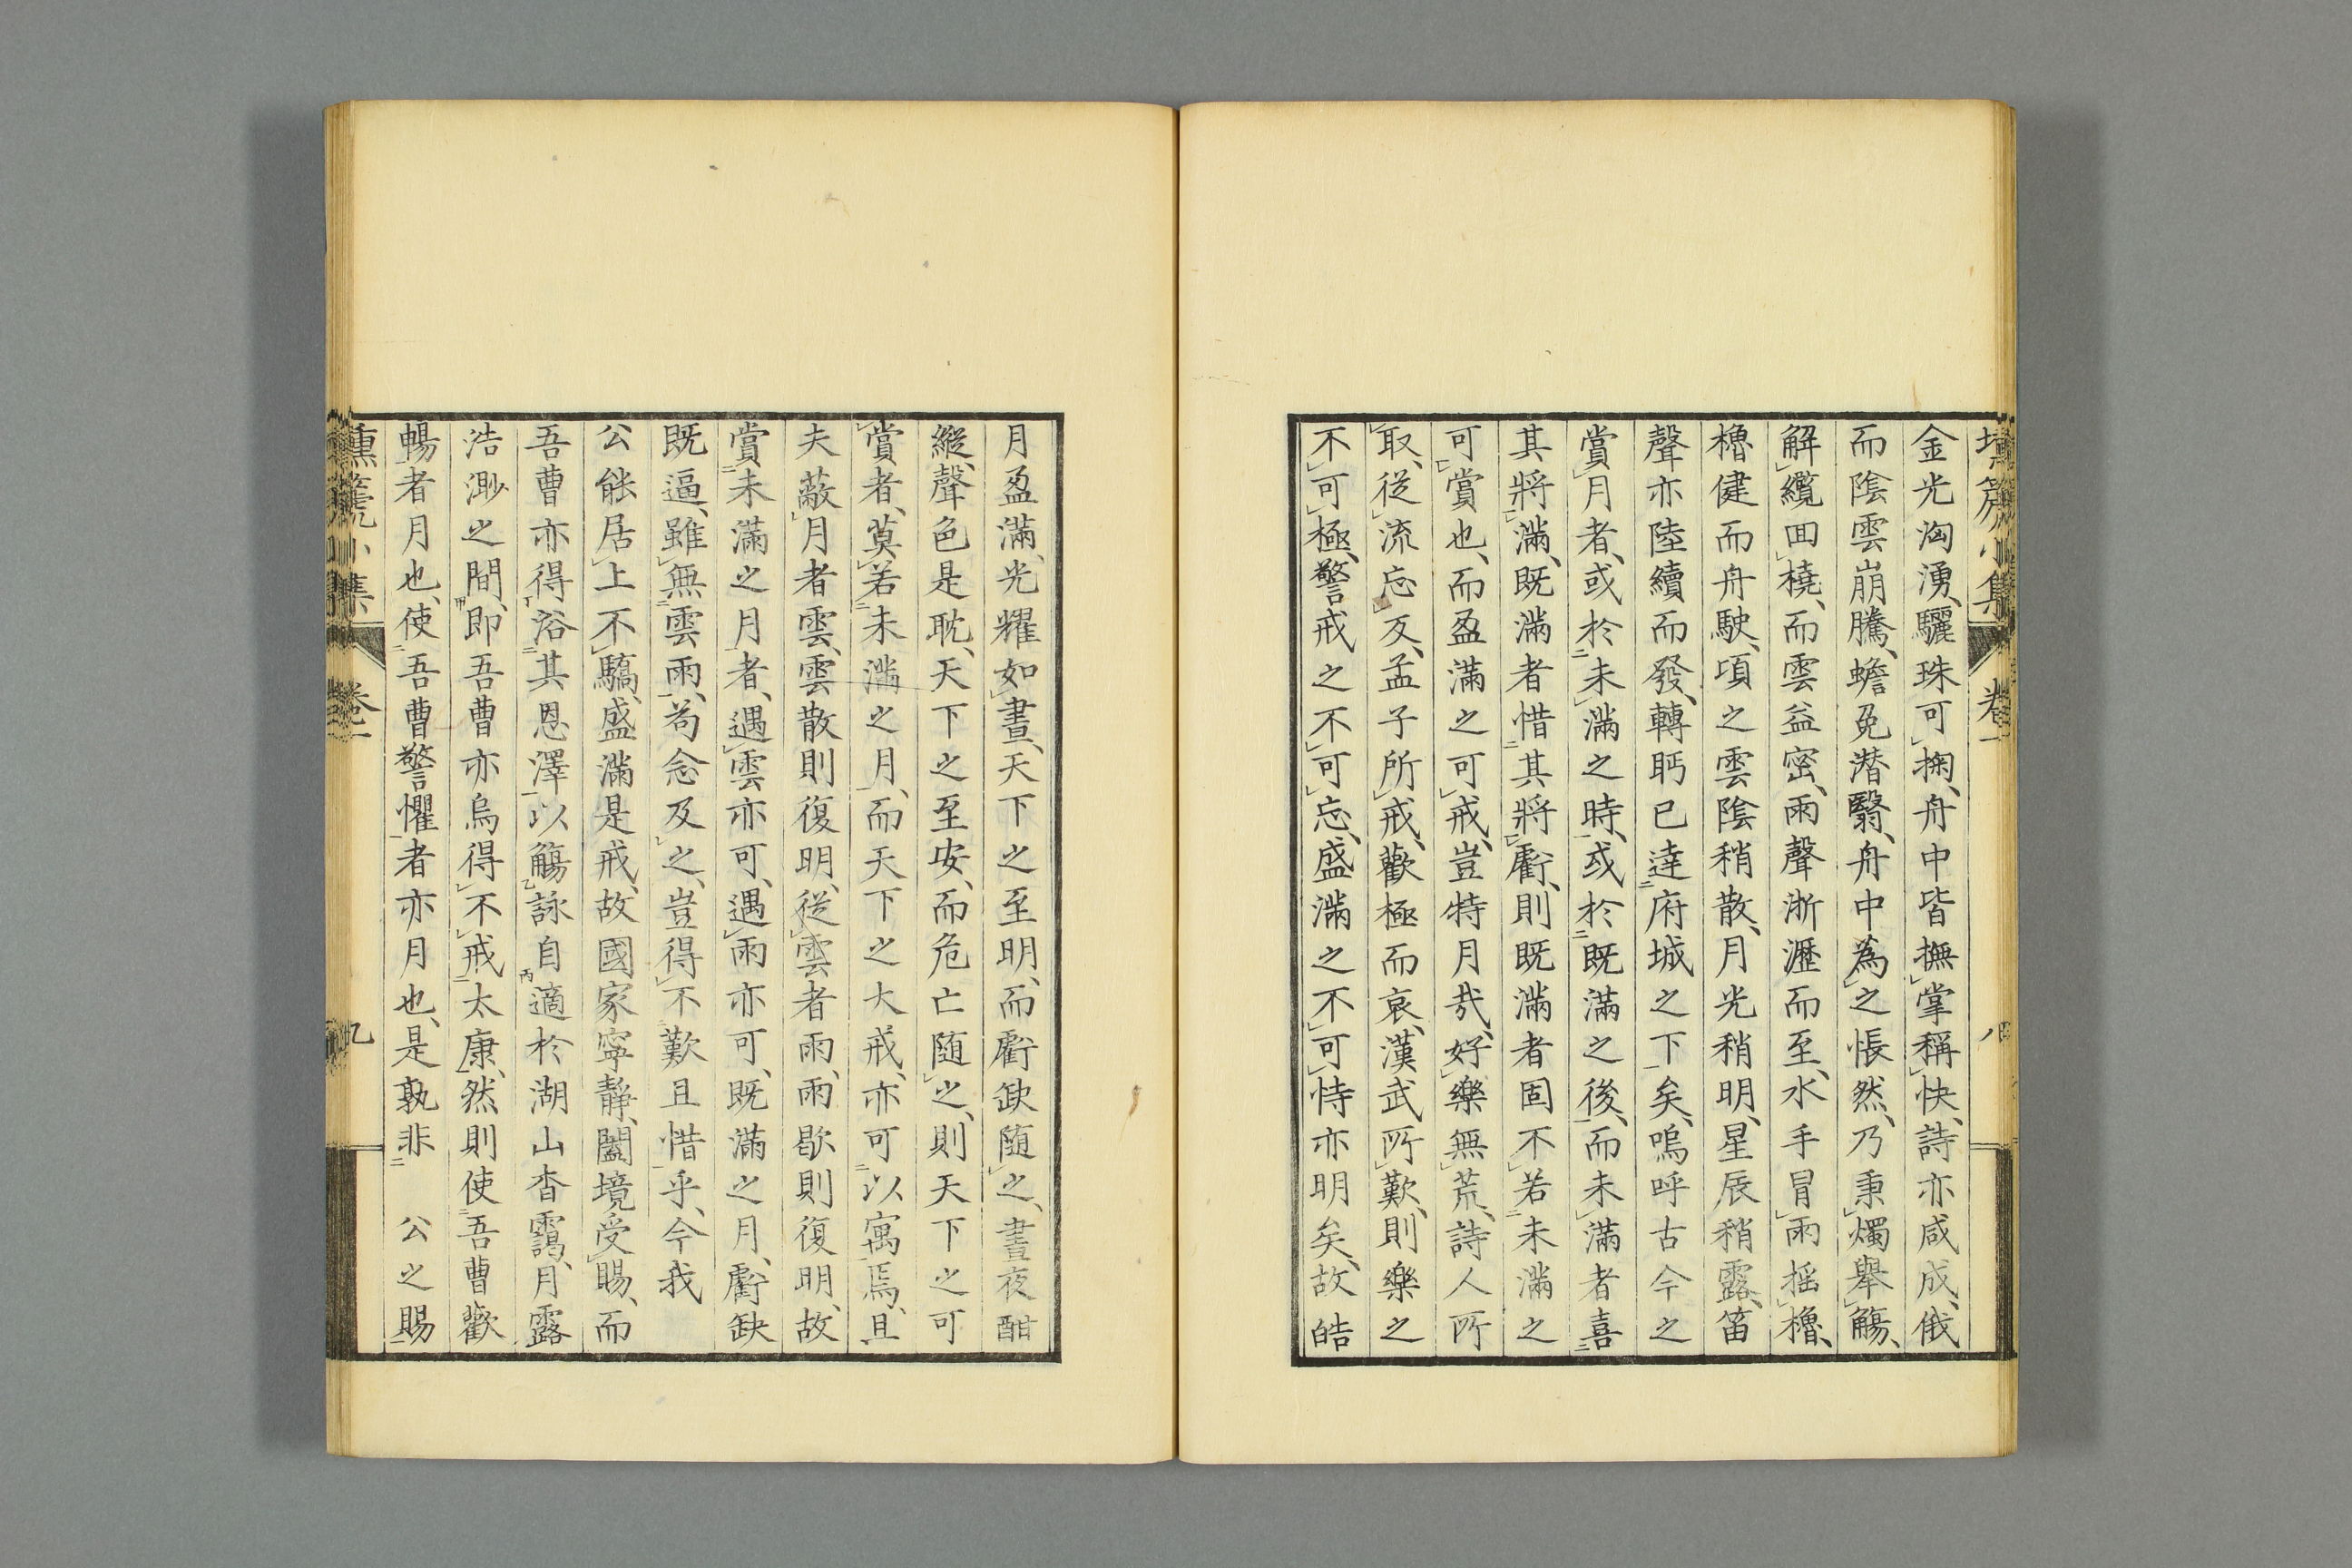 塤篪小集 卷一 八
金光洶湧、驪珠可掬、舟中皆撫掌稱快、詩亦咸成、俄
而陰雲崩騰、蟾兎潜翳、舟中為之悵然、乃秉燭舉觴、
解纜囬橈、而雲益密、雨聲淅瀝而至、水手冒雨揺櫓、
櫓健而舟駛、頃之雲陰稍散、月光稍明、星辰稍露、笛
聲亦陸續而發、轉眄已達府城之下矣、嗚呼古今之
賞月者、或於未滿之時、或於既滿之後、而未滿者喜
其將滿、既滿者惜其將虧、則既滿者固不若未滿之
可賞也、而盈滿之可戒、豈特月哉、好樂無荒、詩人所
取、從流忘反、孟子所戒、歡極而哀、漢武所歎、則樂之
不可極、警戒之不可忘、盛滿之不可恃亦明矣、故皓
月盈滿、光耀如晝、天下之至明、而虧缺随之、晝夜酣
縱、聲色是耽、天下之至安、而危亡随之、則天下之可
賞者、莫若未滿之月、而天下之大戒、亦可以寓焉、且
夫蔽月者雲、雲散則復明、從雲者雨、雨歇則復明、故
賞未滿之月者、遇雲亦可、遇雨亦可、既滿之月、虧缺
既逼、雖無雲雨、苟念及之、豈得不歎且惜乎、今我
公能居上不驕、盛滿是戒、故國家寧静、闔境受賜、而
吾曹亦得浴其恩澤以觴詠自適於湖山杳靄、月露
浩渺之間、即吾曹亦烏得不戒太康、然則使吾曹歡
暢者月也、使吾曹警懼者亦月也、是孰非 公之賜
塤篪小集 卷一 九